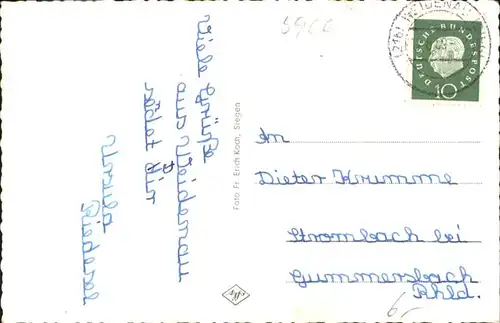 5966
Viele Grüße
aus Weidenau
Dir
Ursula
Foto Fr. Erich Koch, Siegen
(21b) WEIDENAU
DEUTSCHE BUNDESPOST
10
An
Dieter Krumme
Strombach bei
Gummersbach
Rhld.
6,-